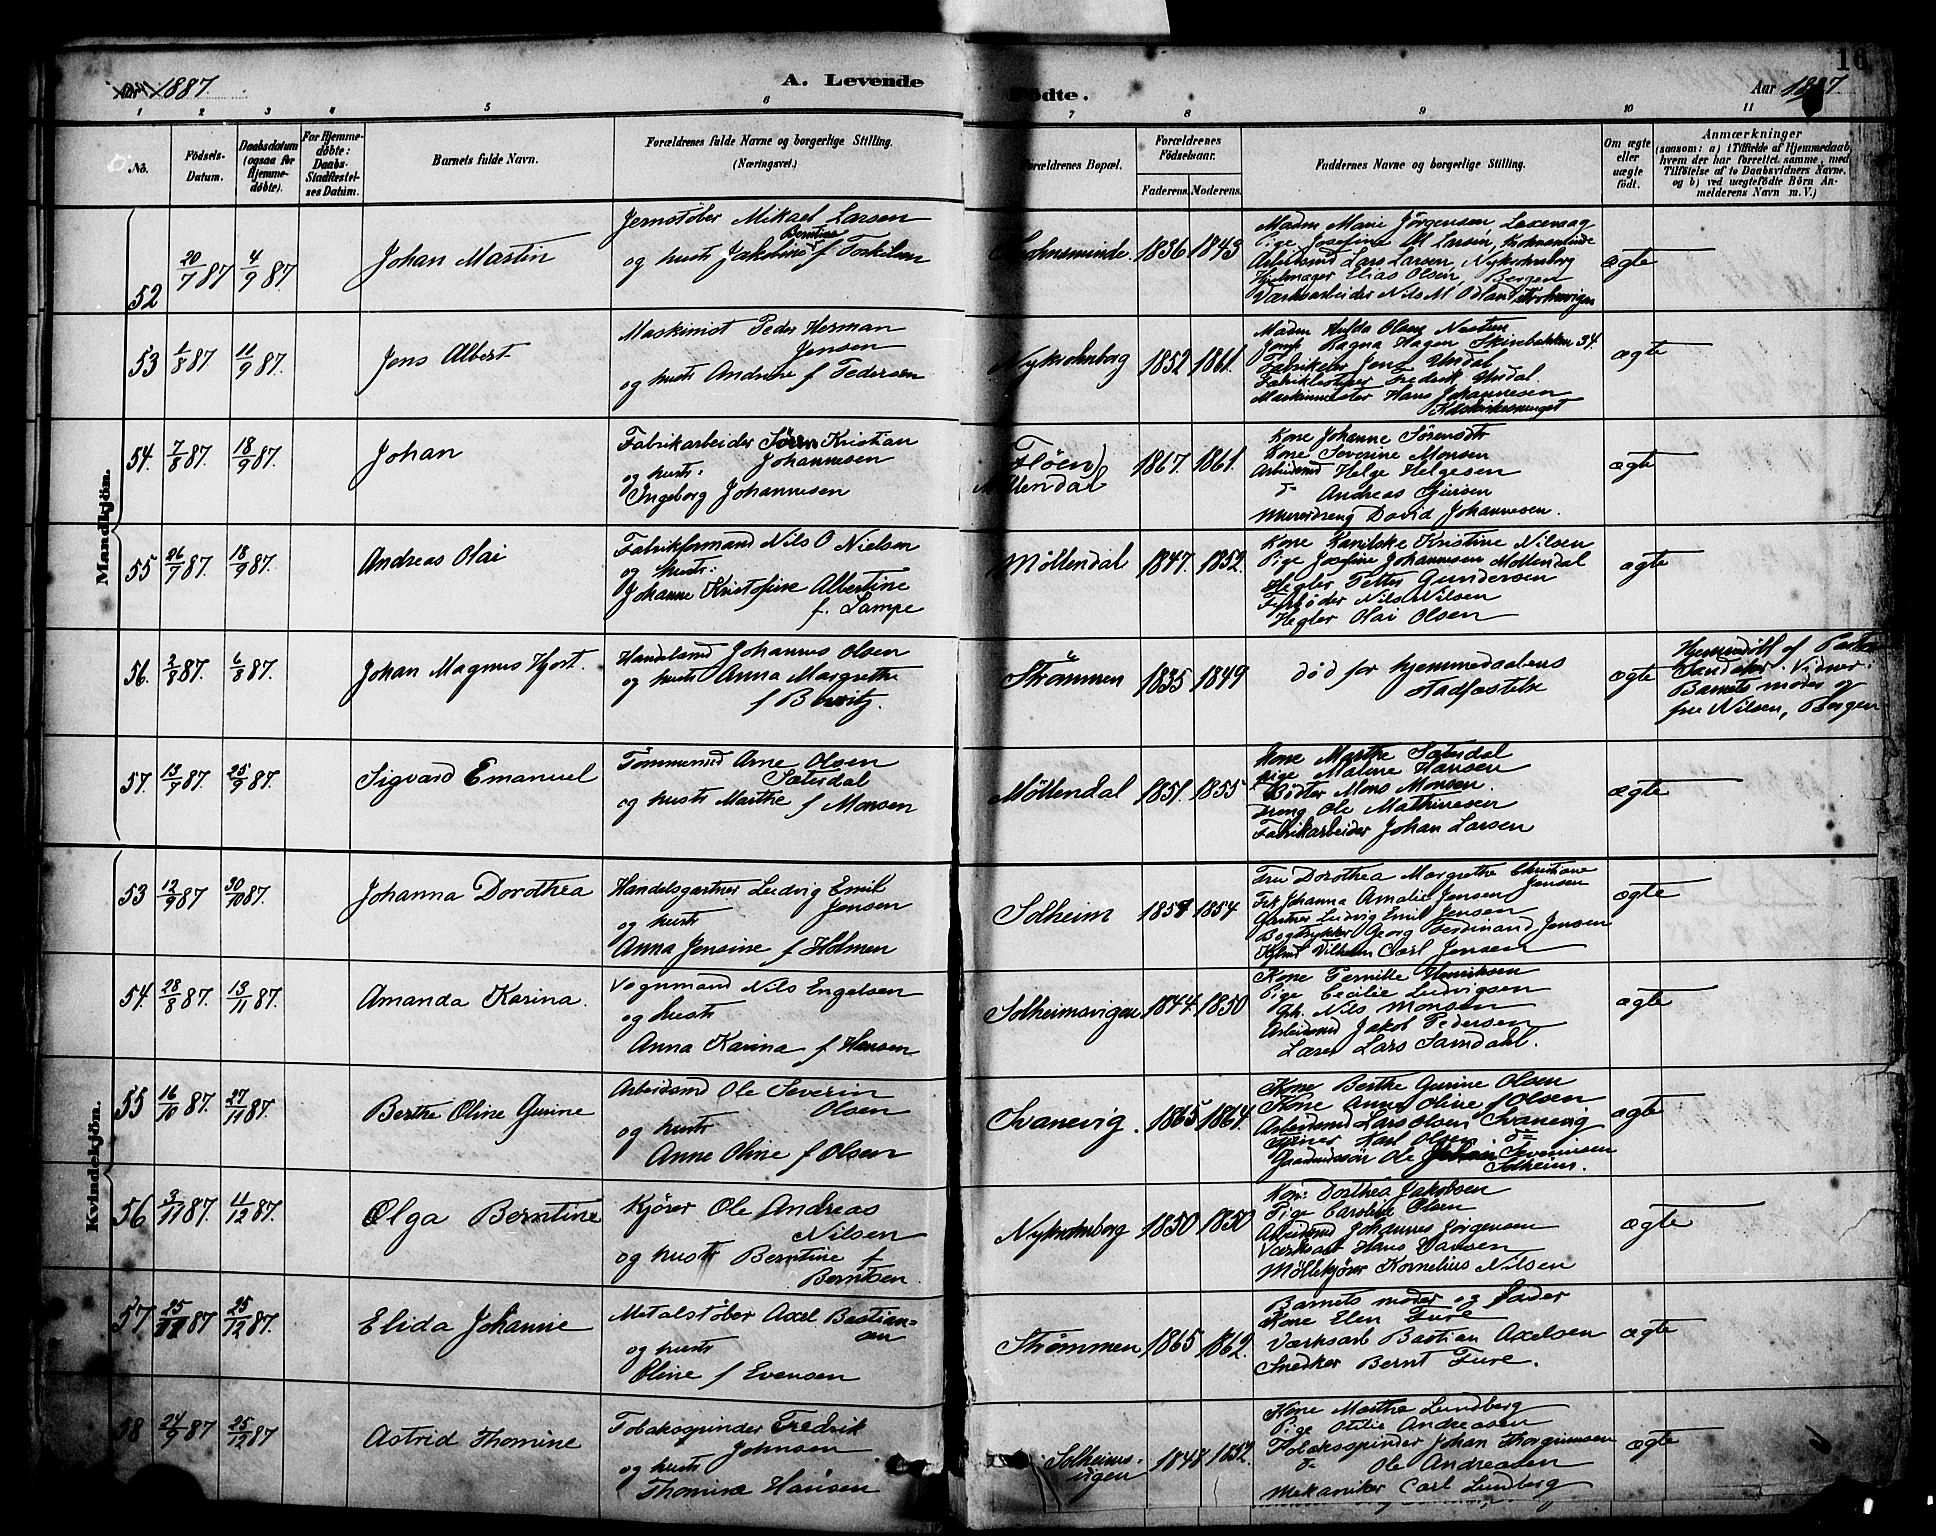 Aar 1887. A. Levende Födte. Aar 1887. 16
1 2 3 4 5 6 7 8 9 10 11
No. Födsels-Datum. Daabsdatum (ogsaa for Hjemme-døbte). For Hjemme-døbte: Daabs-Stadfæstel-ses Datum. Barnets fulde Navn. Forældrenes fulde Navne og borgerlige Stilling. (Næringsvei.) Forældrenes Bopæl. Forældrenes Födselsaar. Faderens. Moderens. Faddernes Navne og borgerlige Stilling. Om ægte eller uægte födt. Anmærkninger (saasom: a) i Tilfælde af Hjemmedaab, hvem der har forrettet samme, med Tilföielse af to Daabsvidners Navne, og b) ved uægtefödte Börn An-melderens Navn m. V.)
Mandkjön.
52 20/7 87 4/9 87. Johan Martin
Jernstöber Mikael Larsen
og hustr Jakobine Berntine f
1836 1843
Madm Marie Jørgensen, Laxevaag
Pige Josefine M Larsen,
Arbeidsmd Lars Larsen, Nykrohnborg
Elias Olsen, Bergen
Værksarbeider Nils M.
ægte
53 1/8 87 11/9 87. Jens Albert
Maskinist Peder Herman
Jensen
og hustr Andrine f Pedersen
Nykrohnborg 1852 1861.
Madm Hulda Olsen
Jomf Ragna Hagen Skivebakken 34.
Jens
Fredrik
Maskinmester Hans Johannesen
ægte
54. 7/8 87. 18/9 87. Johan
Fabrikarbeider Sören Kristian
Johannesen
og hustr:
Ingeborg Johannesen
Fløen
Møllendal
1867. 1861.
Kone Johanne
Kone Severine Monsen
Arbeidsmd Helge Helgesen
do Andreas
Murerdreng David Johannesen.
ægte
55 26/7 87. 18/9 87. Andreas Olai
Fabrikformand Nils O Nielsen
og hustr:
Johanne Kristofine Albertine
f. Lampe
Møllendal 1847. 1852.
Kone Kristine Nilsen
Pige Josefine Johannesen Møllendal
Hegler Petter Gundersen
Nils Nilsen
Hegler Olai Olsen
ægte
56. 2/8 87. 6/8 87. Johan Magnus Hjort.
Handelsmd Johannes Olsen
og hustr Anna Margrethe
f
Strømmen 1835 1849
død for hjemmedaabens
stadfæstelse
ægte
Hjemmedöbt af
Vidner:
Barnets moder og
fru Nilsen, Bergen
57. 13/7 87. 25/9 87. Sigvard Emanuel
Tömmermd Arne Olsen
Sætersdal
og hustr Marthe f Monsen
Møllendal 1851. 1855.
Kone Marthe
Pige Malene Hansen
Bødker Mons Monsen.
Dreng Ole Mathinesen
Fabrikarbeider Johan Larsen
ægte
Kvindekjön.
53 12/9 87 30/10 87. Johanna Dorothea
Handelsgartner Ludvig Emil
Jensen
og hustr
Anna Jensine f Holmen
Solheim 1854
Fru Dorothea Margrethe Christiane
Jensen
Frk Johanna Amalie Jensen
Gartner Ludvig Emil Jensen
Bogtrykker Georg Ferdinand Jensen
Vilhelm Carl Jensen
ægte
54. 28/8 87. 13/11 87. Amanda Karina.
Vognmand Nils Engelsen
og hustr
Anna Karina f Hansen
Solheimsvigen 1844. 1850
Kone Pernille Henriksen
Pige Cecilie Ludvigsen
Nils Monsen
Arbeidsmd Jakob Pedersen
Lærer Lars Samdahl.
ægte
55 16/10 87. 27/11 87. Berthe Oline Gurine
Arbeidsmd Ole Severin
Olsen
og hustr
Anne Oline f Olsen
Svanevig. 1865 1864.
Kone Berthe Gurine Olsen
Kone Anne Oline f Olsen
Arbeidsmd Lars Olsen, Svanevig
Karl Olsen. do
Gaardmdssön Ole Johan Severinsen
Solheim.
ægte
56 3/11 87. 11/12 87. Olga Berntine
Kjörer Ole Andreas
Nilsen
og hustr Berntine f
Berntsen.
Nykrohnborg 1850 1850
Kone Dorthea Jakobsen
Pige Caroline Olsen
Arbeidsmd Johannes Jörgensen
Værksarb Hans Hansen
Möllekjører Kornelius Nilsen
ægte
57. 25/11 87 25/12 87. Elida Johanne
Metalstøber Axel Bastian=
sen
og hustr
Oline f Evensen
Strømmen 1865 1862.
Barnets moder og fader
Kone Elen Fure
Værksarb Bastian Axelsen
Snedker Bernt Fure.
ægte
58 24/9 87 25/12 87 Astrid Thomine
Tobakspinder Fredrik
Johnsen
og hustr
Thomine Hansen
Solheims-
vigen 1852.
Kone Marthe Lundberg
Pige Otilie Andreasen
Tobakspinder Johan Thorgrimsen
do Ole Andreasen
Mekaniker Carl Lundberg
ægte